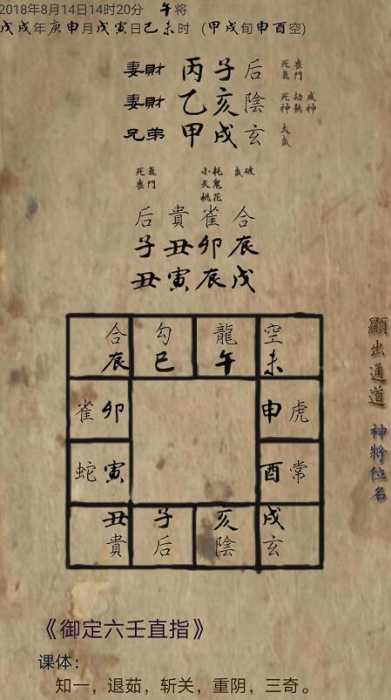 2018年8月14日14时20分 午将
戊戌年庚申月戊寅日己未时 (甲戌旬申酉空)
妻財 丙子后 死氣 喪門
妻財 乙亥陰 死神 劫煞 成神
兄弟 甲戌玄 太歲
死氣 小耗 歲破
喪門 天鬼
桃花
后貴雀合
子丑卯辰
丑寅辰戊
合 勾 龍 空
辰 巳 午 未
雀卯 申虎
蛇寅 酉常
丑 子 亥 戌
貴 后 陰 玄
顯出通道 神將位名
《御定六壬直指》
课体:
知一，退茹，斩关，重阴，三奇。